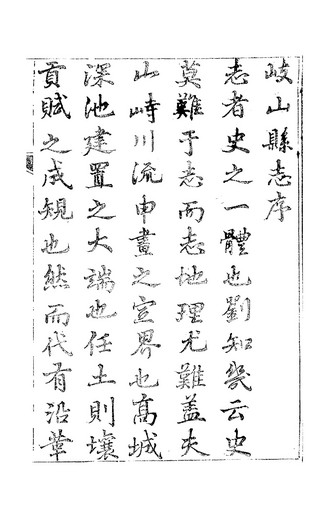 岐山縣志序
志者史之一體也劉知幾云史
莫難于志而志地理尤難蓋夫
山峙川流申畫之宣界也高城
深池建置之大端也任土則壤
貢賦之成規也然而代有沿革